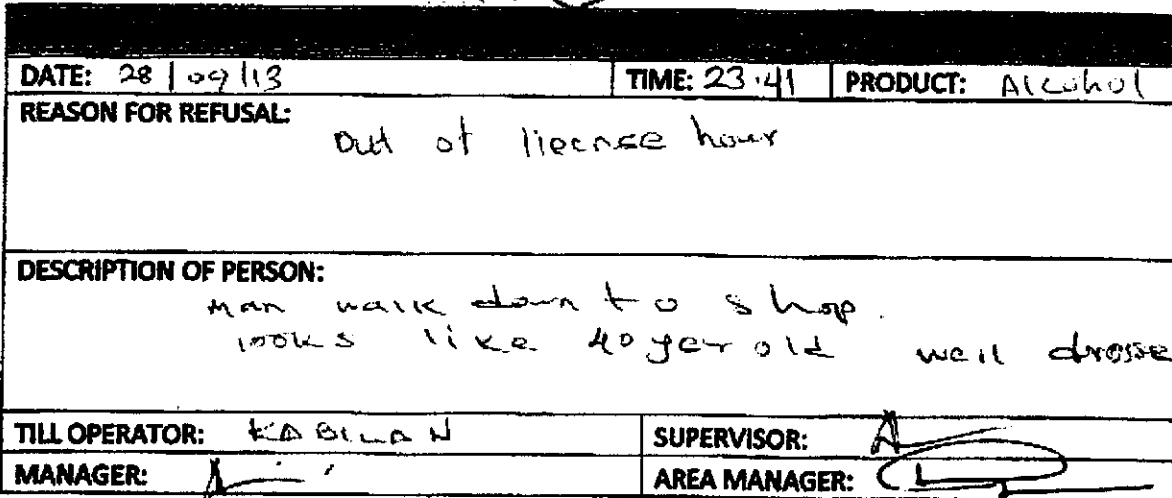 DATE: 28/09/13 TIME: 23.41 PRODUCT: Alcohol
REASON FOR REFUSAL:
Out of liecnce hour
DESCRIPTION OF PERSON:
Man walk down to shop.
looks like 40 yer old well drosse
TILL OPERATOR: KABILAN SUPERVISOR:
MANAGER: AREA MANAGER: